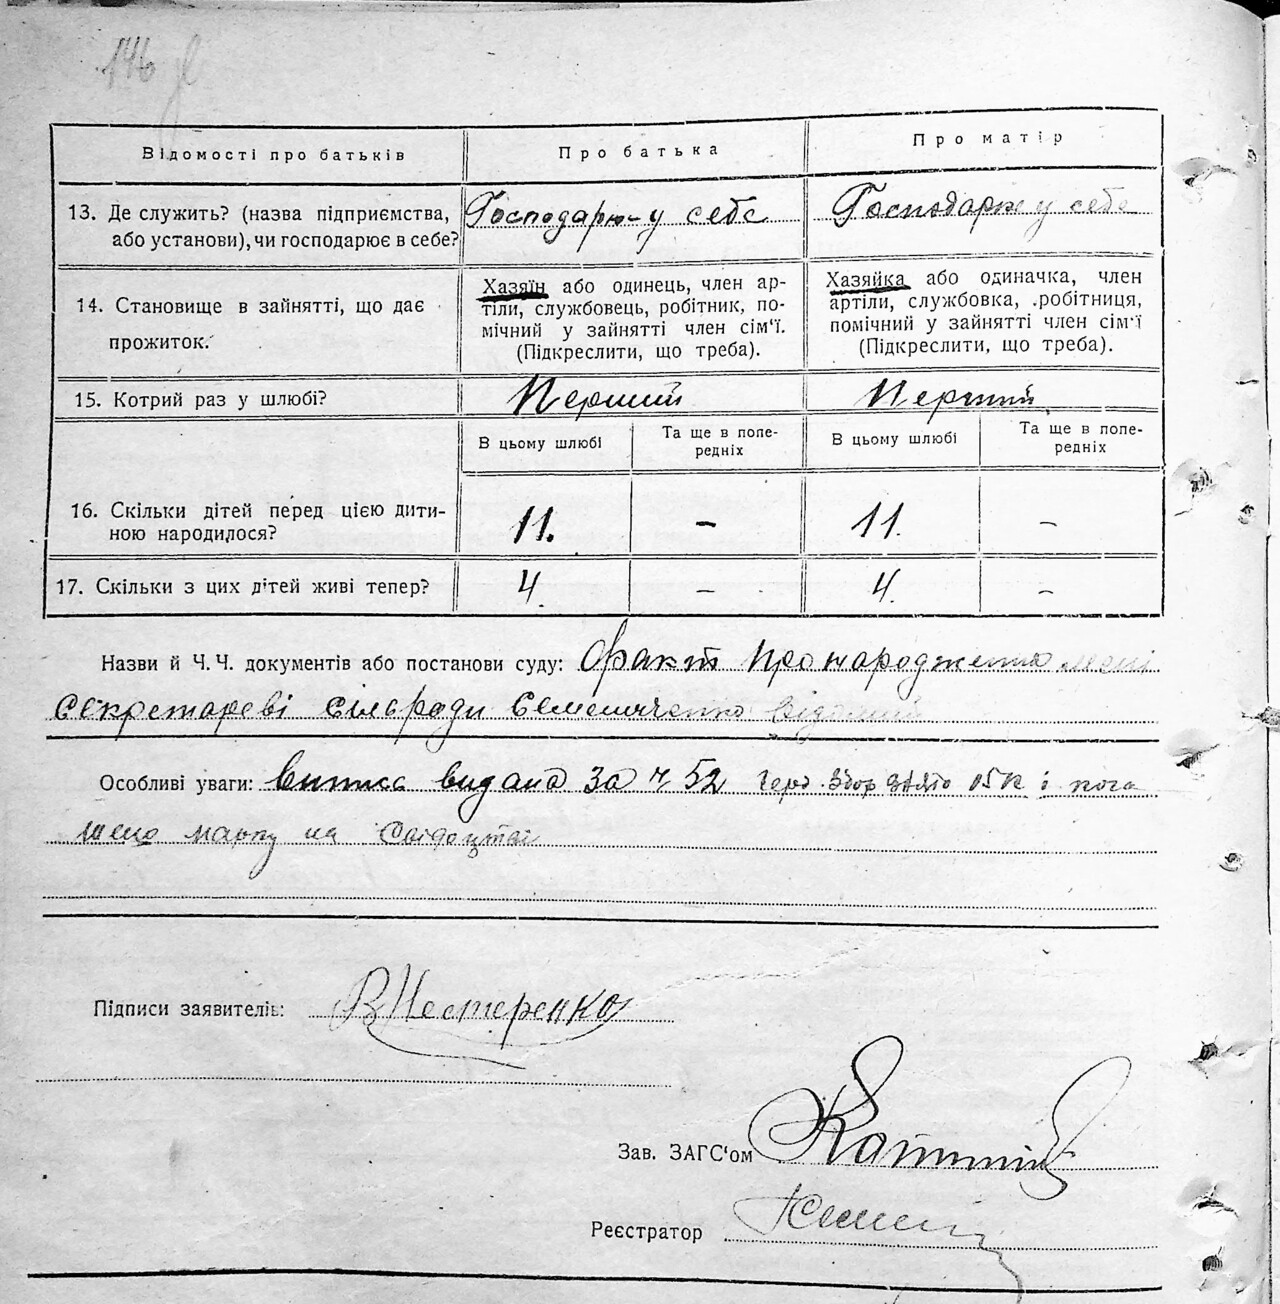 146
Відомості про батьків
Про батька
Про матір
13. Де служить? (назва підприємства,
або установи), чи господарює в себе?
Господарює у себе
Господарює у себе
14. Становище в зайнятті, що дає
прожиток.
Хазяїн або одинець, член ар-
тіли, службовець, робітник, по-
мічний у зайнятті член сім'ї.
(Підкреслити, що треба).
Хазяйка або одиначка, член
артіли, службовка, робітниця,
помічний у зайнятті член сім'ї
(Підкреслити, що треба).
15. Котрий раз у шлюбі?
Перший
Перший
В цьому шлюбі
Та ще в попе-
редніх
В цьому шлюбі
Та ще в попе-
редніх
16. Скільки дітей перед цією дити-
ною народилося?
11. – 11. –
17. Скільки з цих дітей живі тепер?
4. – 4. –
Назви й Ч. Ч. документів або постанови суду: Факт про народження мені
секретареві сільради Семениченко відомий
Особливі уваги: Випись видана за ч 52 герб. збор взято 15 к і пога
шено марку на свідоцтві
Підписи заявителів: В Нестеренко
Зав. ЗАГС'ом
Реєстратор